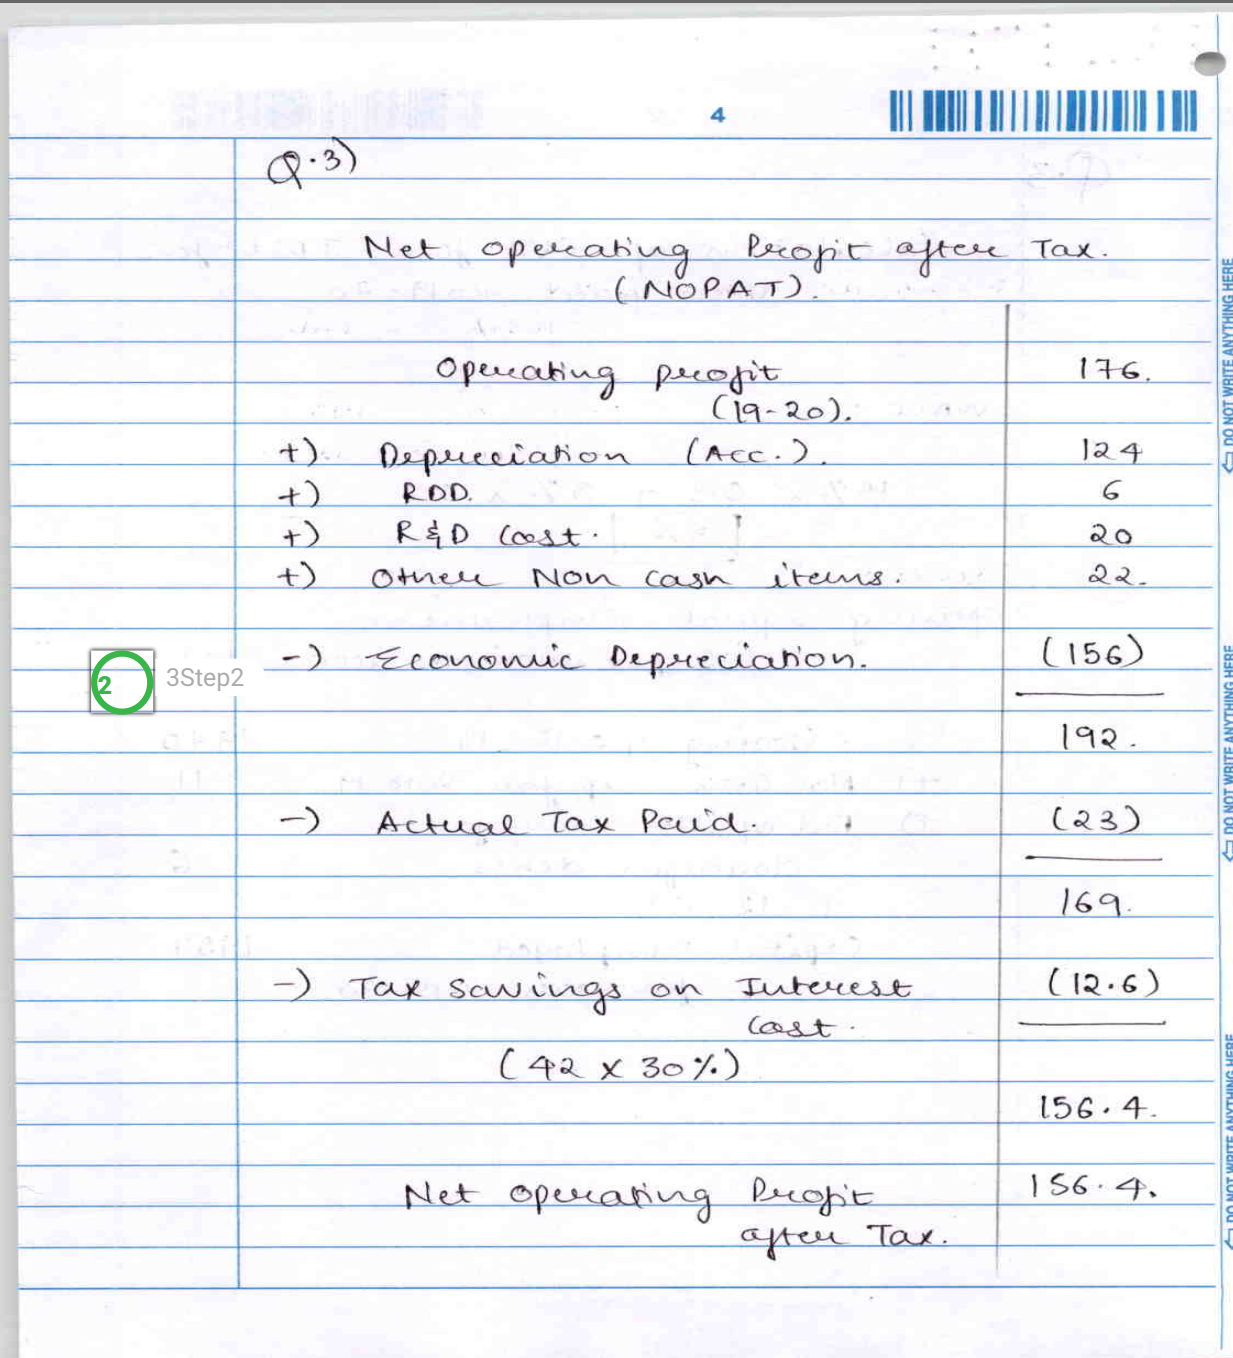 4
Q.3)
Net operating Profit after Tax.
(NOPAT).
Operating profit 176.
(19-20).
+) Depreciation (Acc.). 124
+) RDD. 6
+) R&D Cost. 20
+) Other Non cash items. 22.
-) Economic Depreciation. (156)
2 3Step2
192.
-) Actual Tax Paid. (23)
169.
-) Tax savings on Interest (12.6)
Cost.
(42 x 30%)
156.4.
Net operating Profit 156.4.
after Tax.
DO NOT WRITE ANYTHING HERE
DO NOT WRITE ANYTHING HERE
DO NOT WRITE ANYTHING HERE